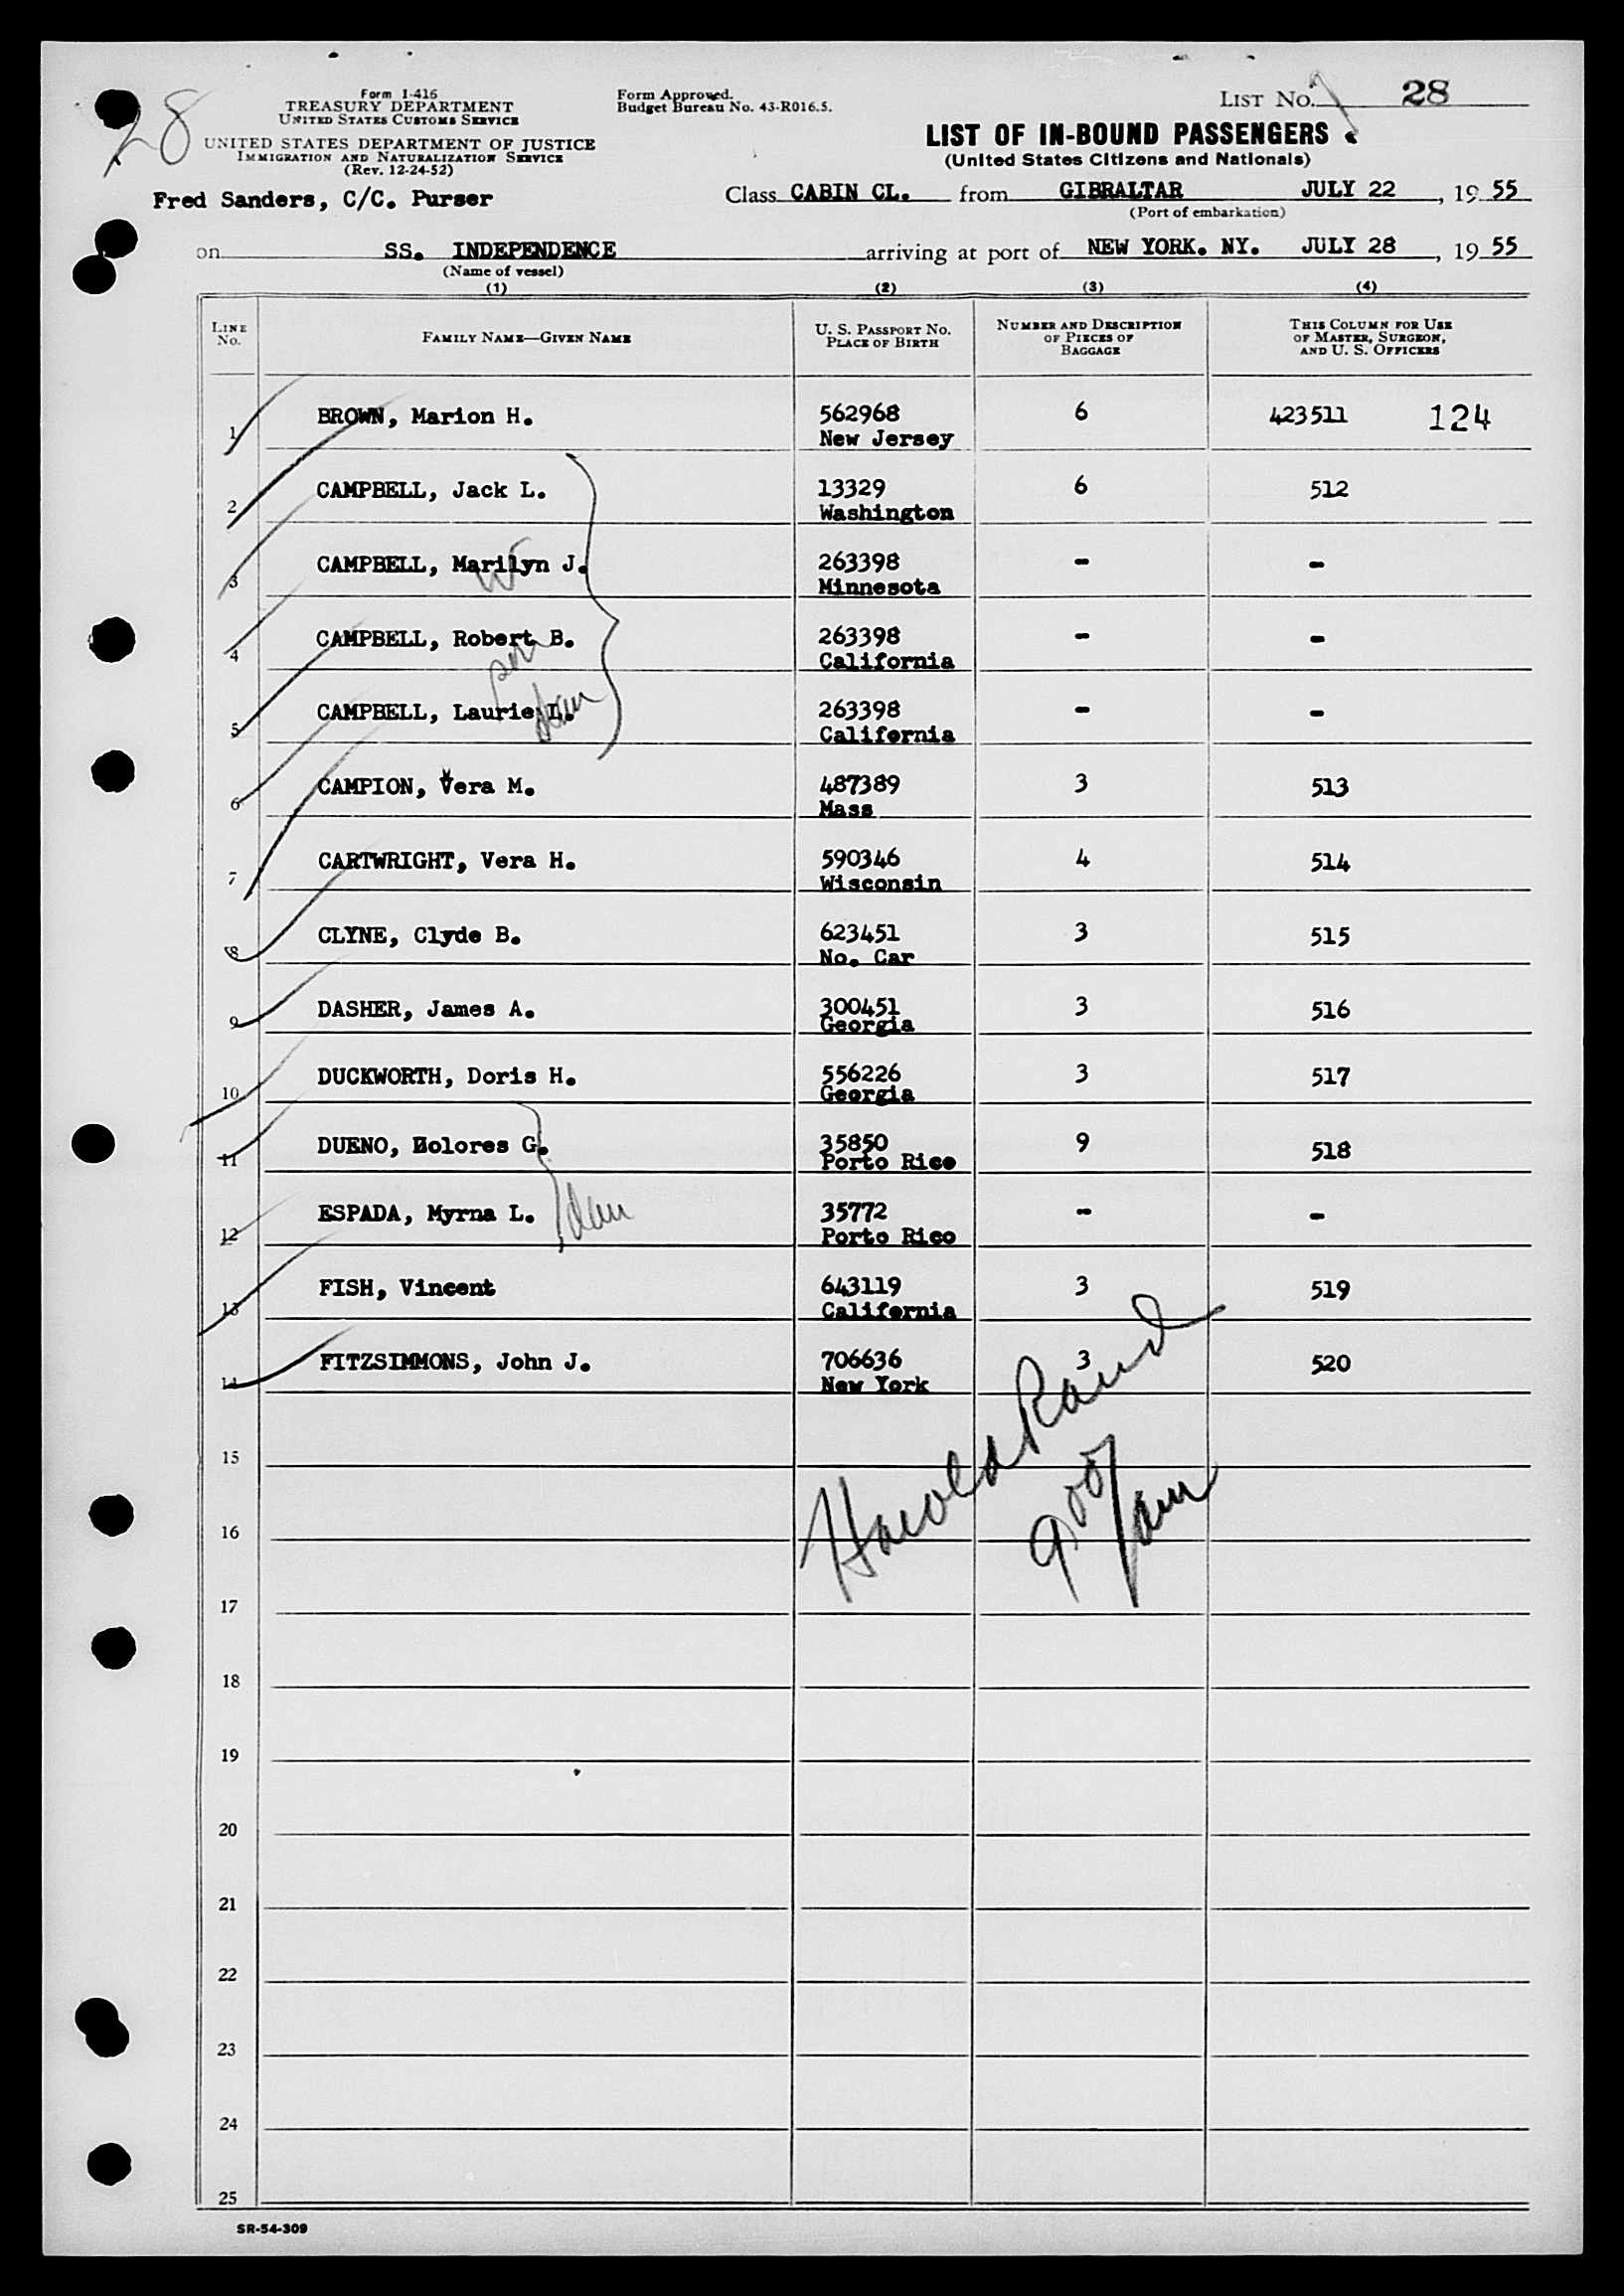 28
Form I-416
TREASURY DEPARTMENT
UNITED STATES CUSTOMS SERVICE
UNITED STATES DEPARTMENT OF JUSTICE
IMMIGRATION AND NATURALIZATION SERVICE
(Rev. 12-24-52)
Form Approved.
Budget Bureau No. 43-R016.5.
LIST NO. 28
LIST OF IN-BOUND PASSENGERS
(United States Citizens and Nationals)
Fred Sanders, C/C. Purser
Class CABIN CL. from GIBRALTAR JULY 22, 1955
(Port of embarkation)
on SS. INDEPENDENCE arriving at port of NEW YORK. NY. JULY 28, 1955
(Name of vessel)
(1) (2) (3) (4)
LINE NO. FAMILY NAME—GIVEN NAME U. S. PASSPORT NO. PLACE OF BIRTH NUMBER AND DESCRIPTION OF PIECES OF BAGGAGE THIS COLUMN FOR USE OF MASTER, SURGEON, AND U. S. OFFICERS
1 BROWN, Marion H. 562968 6 423511 124
New Jersey
2 CAMPBELL, Jack L. 13329 6 512
Washington
3 CAMPBELL, Marilyn J. 263398 - -
W
Minnesota
4 CAMPBELL, Robert B. 263398 - -
son
California
5 CAMPBELL, Laurie L. 263398 - -
dau
California
6 CAMPION, Vera M. 487389 3 513
Mass
7 CARTWRIGHT, Vera H. 590346 4 514
Wisconsin
8 CLYNE, Clyde B. 623451 3 515
No. Car
9 DASHER, James A. 300451 3 516
Georgia
10 DUCKWORTH, Doris H. 556226 3 517
Georgia
11 DUENO, Dolores G. 35850 9 518
Porto Rico
12 ESPADA, Myrna L. 35772 - -
dau
Porto Rico
13 FISH, Vincent 643119 3 519
California
14 FITZSIMMONS, John J. 706636 3 520
New York
Harold Rand
900/am
15
16
17
18
19
20
21
22
23
24
25
SR-54-309